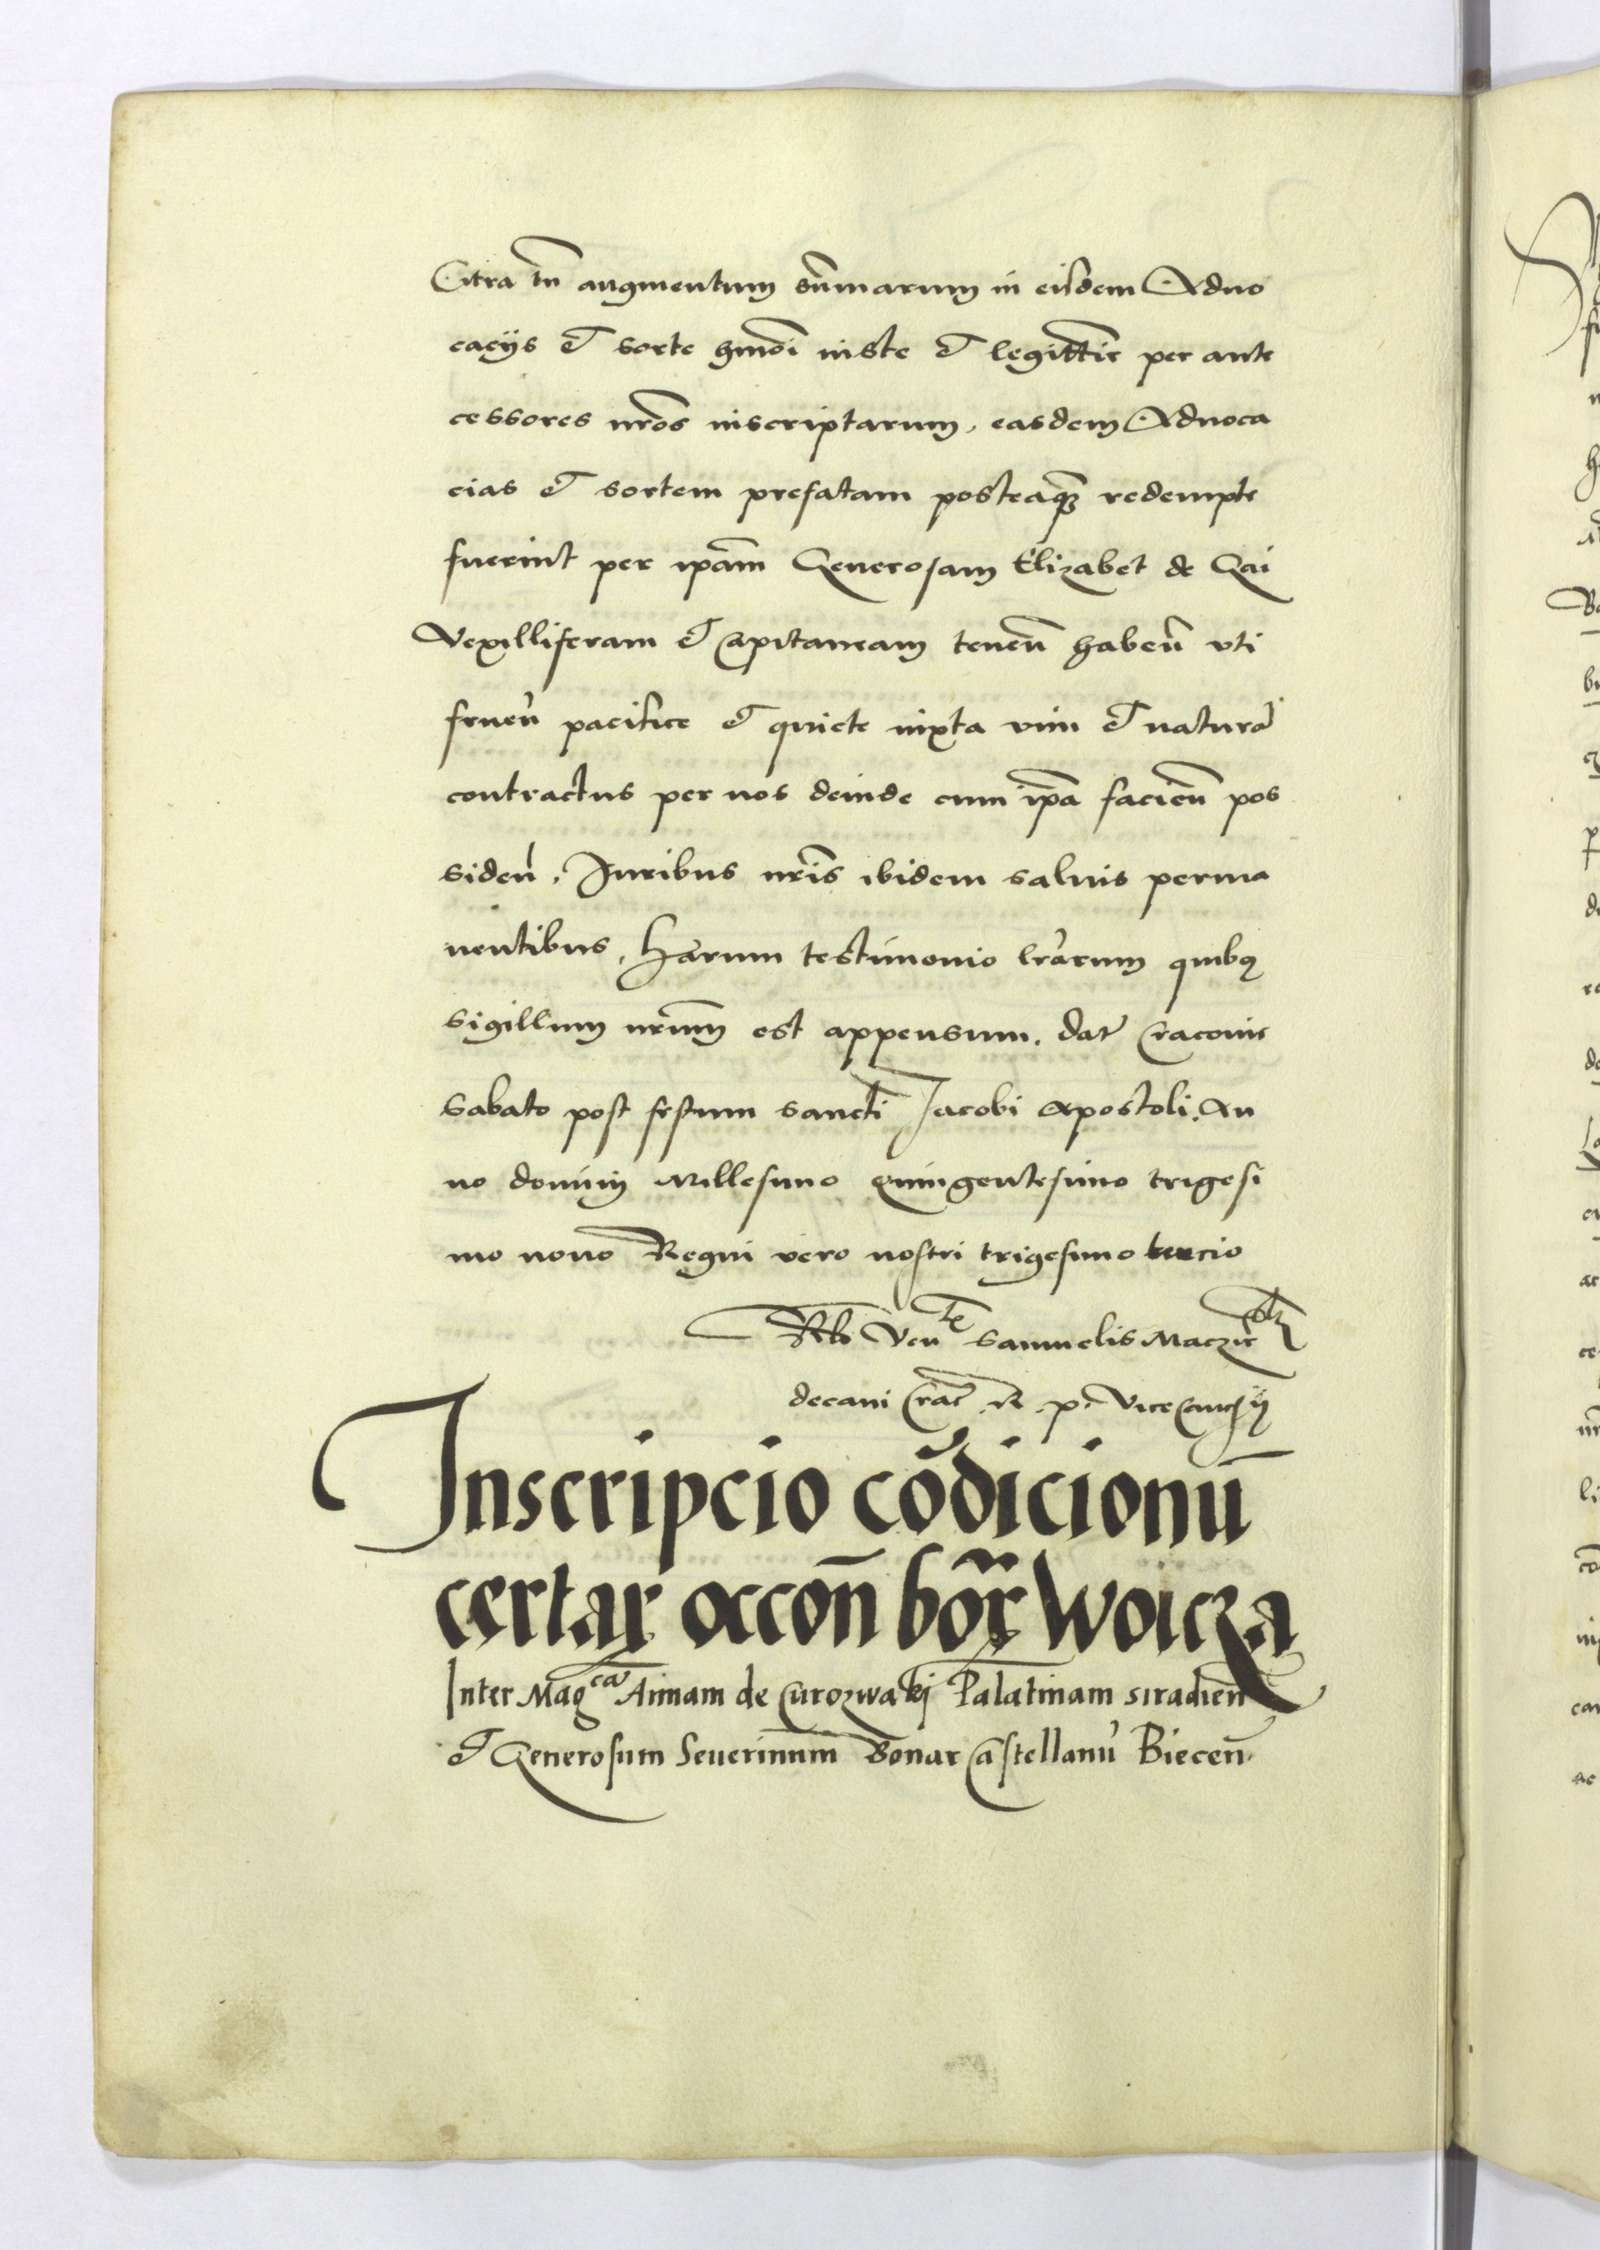 Citra tn̄ augmentum sum̄arum in eisdem Aduo
cacijs et sorte hmōi iuste et legittime per ante
cessores nrōs inscriptarum, easdem Aduoca
cias et sortem prefatam posteaq̄ redempte
fuerint per ip̄am Generosam Elizabet de Gai
Vexilliferam et Capitaneam tenen̄ haben̄ vti
fruen̄ pacifice et quiete iuxta vim et naturā
contractus per nos deinde cum ip̄a facien̄ pos
siden̄. Iuribus nrīs ibidem saluis perma
nentibus, harum testimonio lrārum quibꝫ
sigillum nrūm est appensum. dat̄ Cracouie
sabato post festum sancti Jacobi Apostoli. An
no domini Millesimo Quingentesimo trigesi
mo nono Regni vero nostri trigesimo tercio
Rlō Ven te Samuelis Macze
decani Crac̄ R. p. ViceCanc ij
Inscripcio cōdicionū
certar accōn bōr Woicza
Inter Mag ca Annam de Curozwakj Palatinam siradien̄
et Generosum Seuerinum Bonar Castellanū Biecen̄